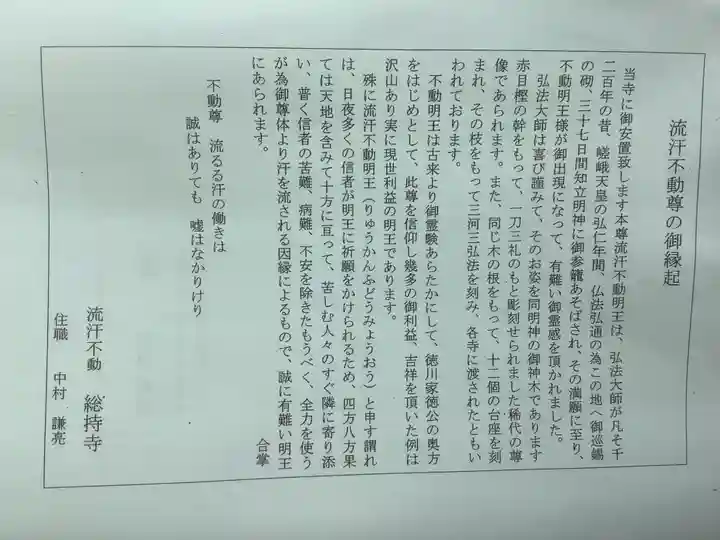 流汗不動尊の御縁起
当寺に御安置致します本尊流汗不動明王は、弘法大師が凡そ千
二百年の昔、嵯峨天皇の弘仁年間、仏法弘通の為この地へ御巡錫
の砌、三十七日間知立明神に御参籠あそばされ、その満願に至り、
不動明王様が御出現になって、有難い御霊感を頂かれました。
弘法大師は喜び謹みて、そのお姿を同明神の御神木であります
赤目樫の幹をもって、一刀三礼のもと彫刻せられました稀代の尊
像であられます。また、同じ木の根をもって、十二個の台座を刻
まれ、その枝をもって三河三弘法を刻み、各寺に渡されたともい
われております。
不動明王は古来より御霊験あらたかにして、徳川家徳公の奥方
をはじめとして、此尊を信仰し幾多の御利益、吉祥を頂いた例は
沢山あり実に現世利益の明王であります。
殊に流汗不動明王（りゅうかんふどうみょうおう）と申す謂れ
は、日夜多くの信者が明王に祈願をかけられるため、四方八方果
ては天地を含みて十方に亘って、苦しむ人々のすぐ隣に寄り添
い、普く信者の苦難、病難、不安を除きたもうべく、全力を使う
が為御尊体より汗を流される因縁によるもので、誠に有難い明王
にあられます。
合掌
不動尊　流るる汗の働きは
誠はありても　嘘はなかりけり
流汗不動　総持寺
住職　中村　謙亮